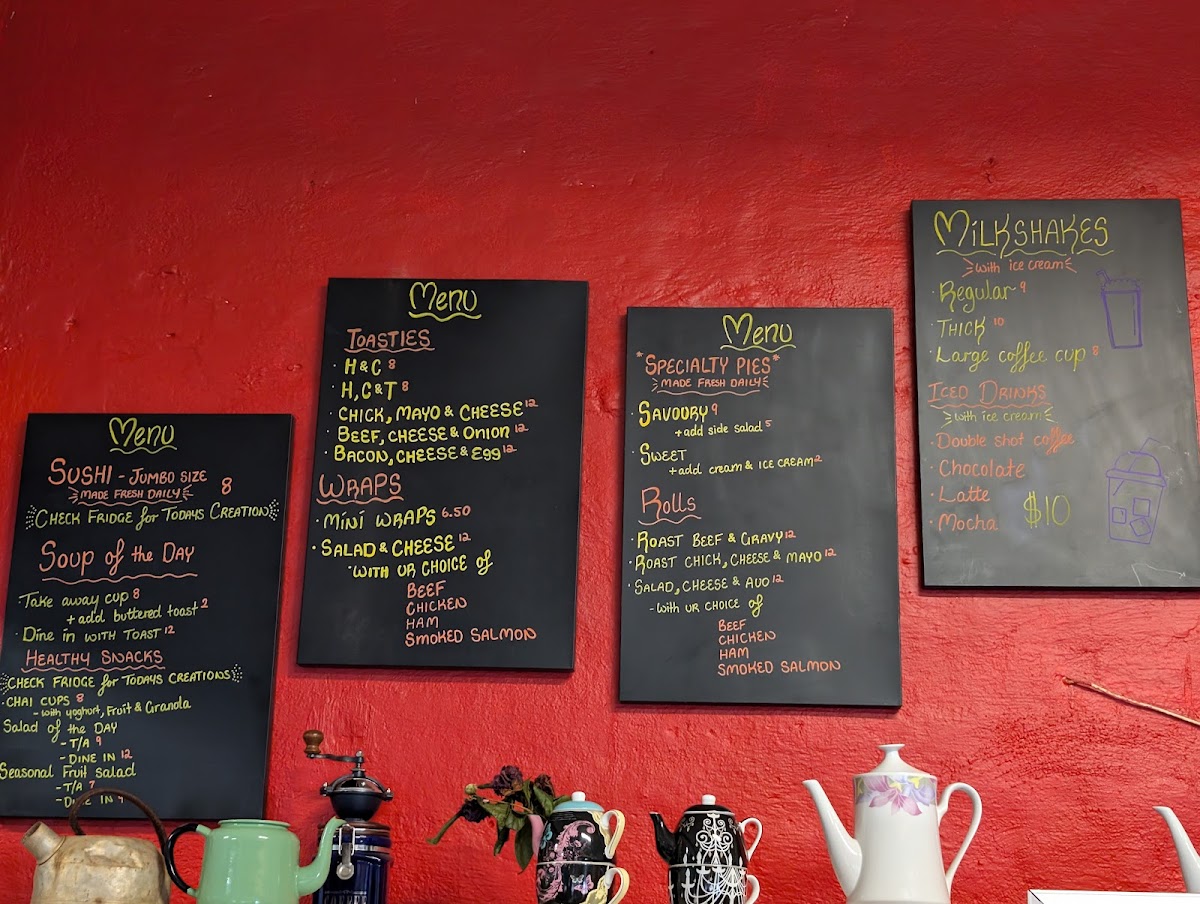 Menu
SUSHI - JUMBO SIZE 8
MADE FRESH DAILY
CHECK FRIDGE for TODAYS CREATION
SOUP of the DAY
TAKE away cup 8
+ add buttered toast 2
Dine in WITH TOAST 12
HEALTHY SNACKS
CHECK FRIDGE for TODAYS CREATIONS
CHAI CUPS 8
- with yoghurt, Fruit & Granola
Salad of the DAY
- T/A 9
- DINE IN 12
Seasonal Fruit salad
- T/A 7
- DINE IN
Menu
TOASTIES
H & C 8
H, C & T 8
CHICK, MAYO & CHEESE 12
BEEF, CHEESE & ONION 12
BACON, CHEESE & EGG 12
WRAPS
MINI WRAPS 6.50
SALAD & CHEESE 12
WITH UR CHOICE of
BEEF
CHICKEN
HAM
SMOKED SALMON
Menu
*SPECIALTY PIES*
MADE FRESH DAILY
SAVOURY 9
+ add side salad 5
SWEET
+ add cream & ICE CREAM 2
Rolls
ROAST BEEF & GRAVY 12
ROAST CHICK, CHEESE & MAYO 12
SALAD, CHEESE & AVO 12
- WITH UR CHOICE of
BEEF
CHICKEN
HAM
SMOKED SALMON
MILKSHAKES
with ice cream
Regular 9
THICK 10
Large coffee cup 8
ICED DRINKS
with ice cream
Double shot coffee
Chocolate
Latte
Mocha $10